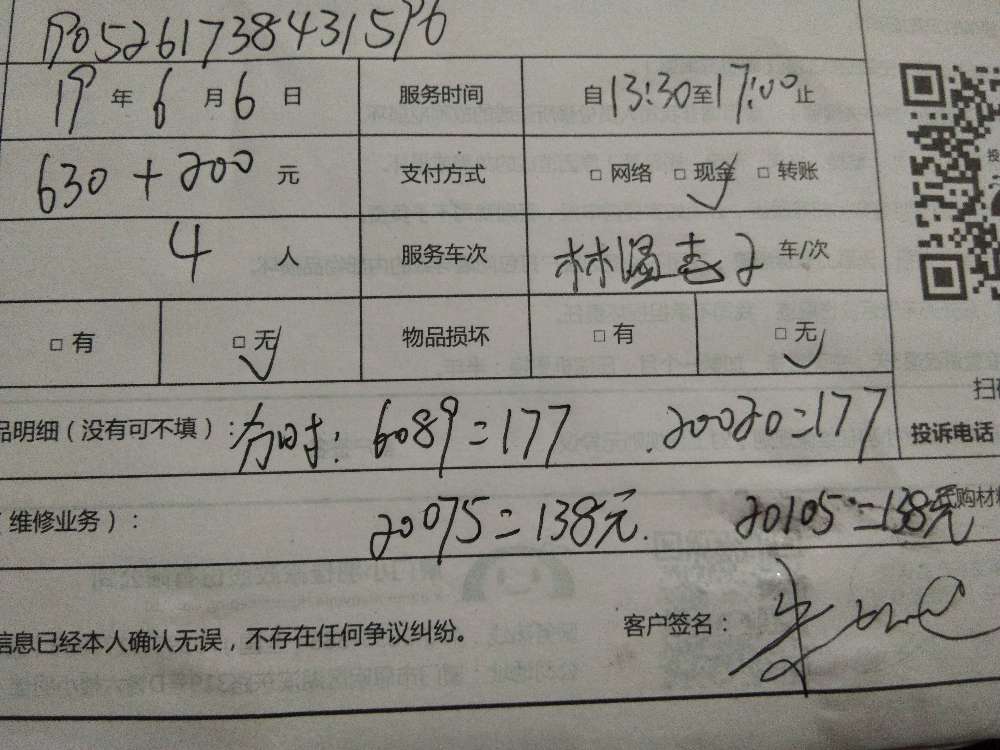 P05261738431596
19 年 6 月 6 日 服务时间 自 13:30 至 17:00 止
630 + 200 元 支付方式 □ 网络 □ 现金 □ 转账
4 人 服务车次 车/次
□ 有 □ 无 物品损坏 □ 有 □ 无
扫
品明细(没有可不填): 6089=177 20020=177 投诉电话
维修业务): 20075=138元. 20105=138元 购材
信息已经本人确认无误,不存在任何争议纠纷。 客户签名: